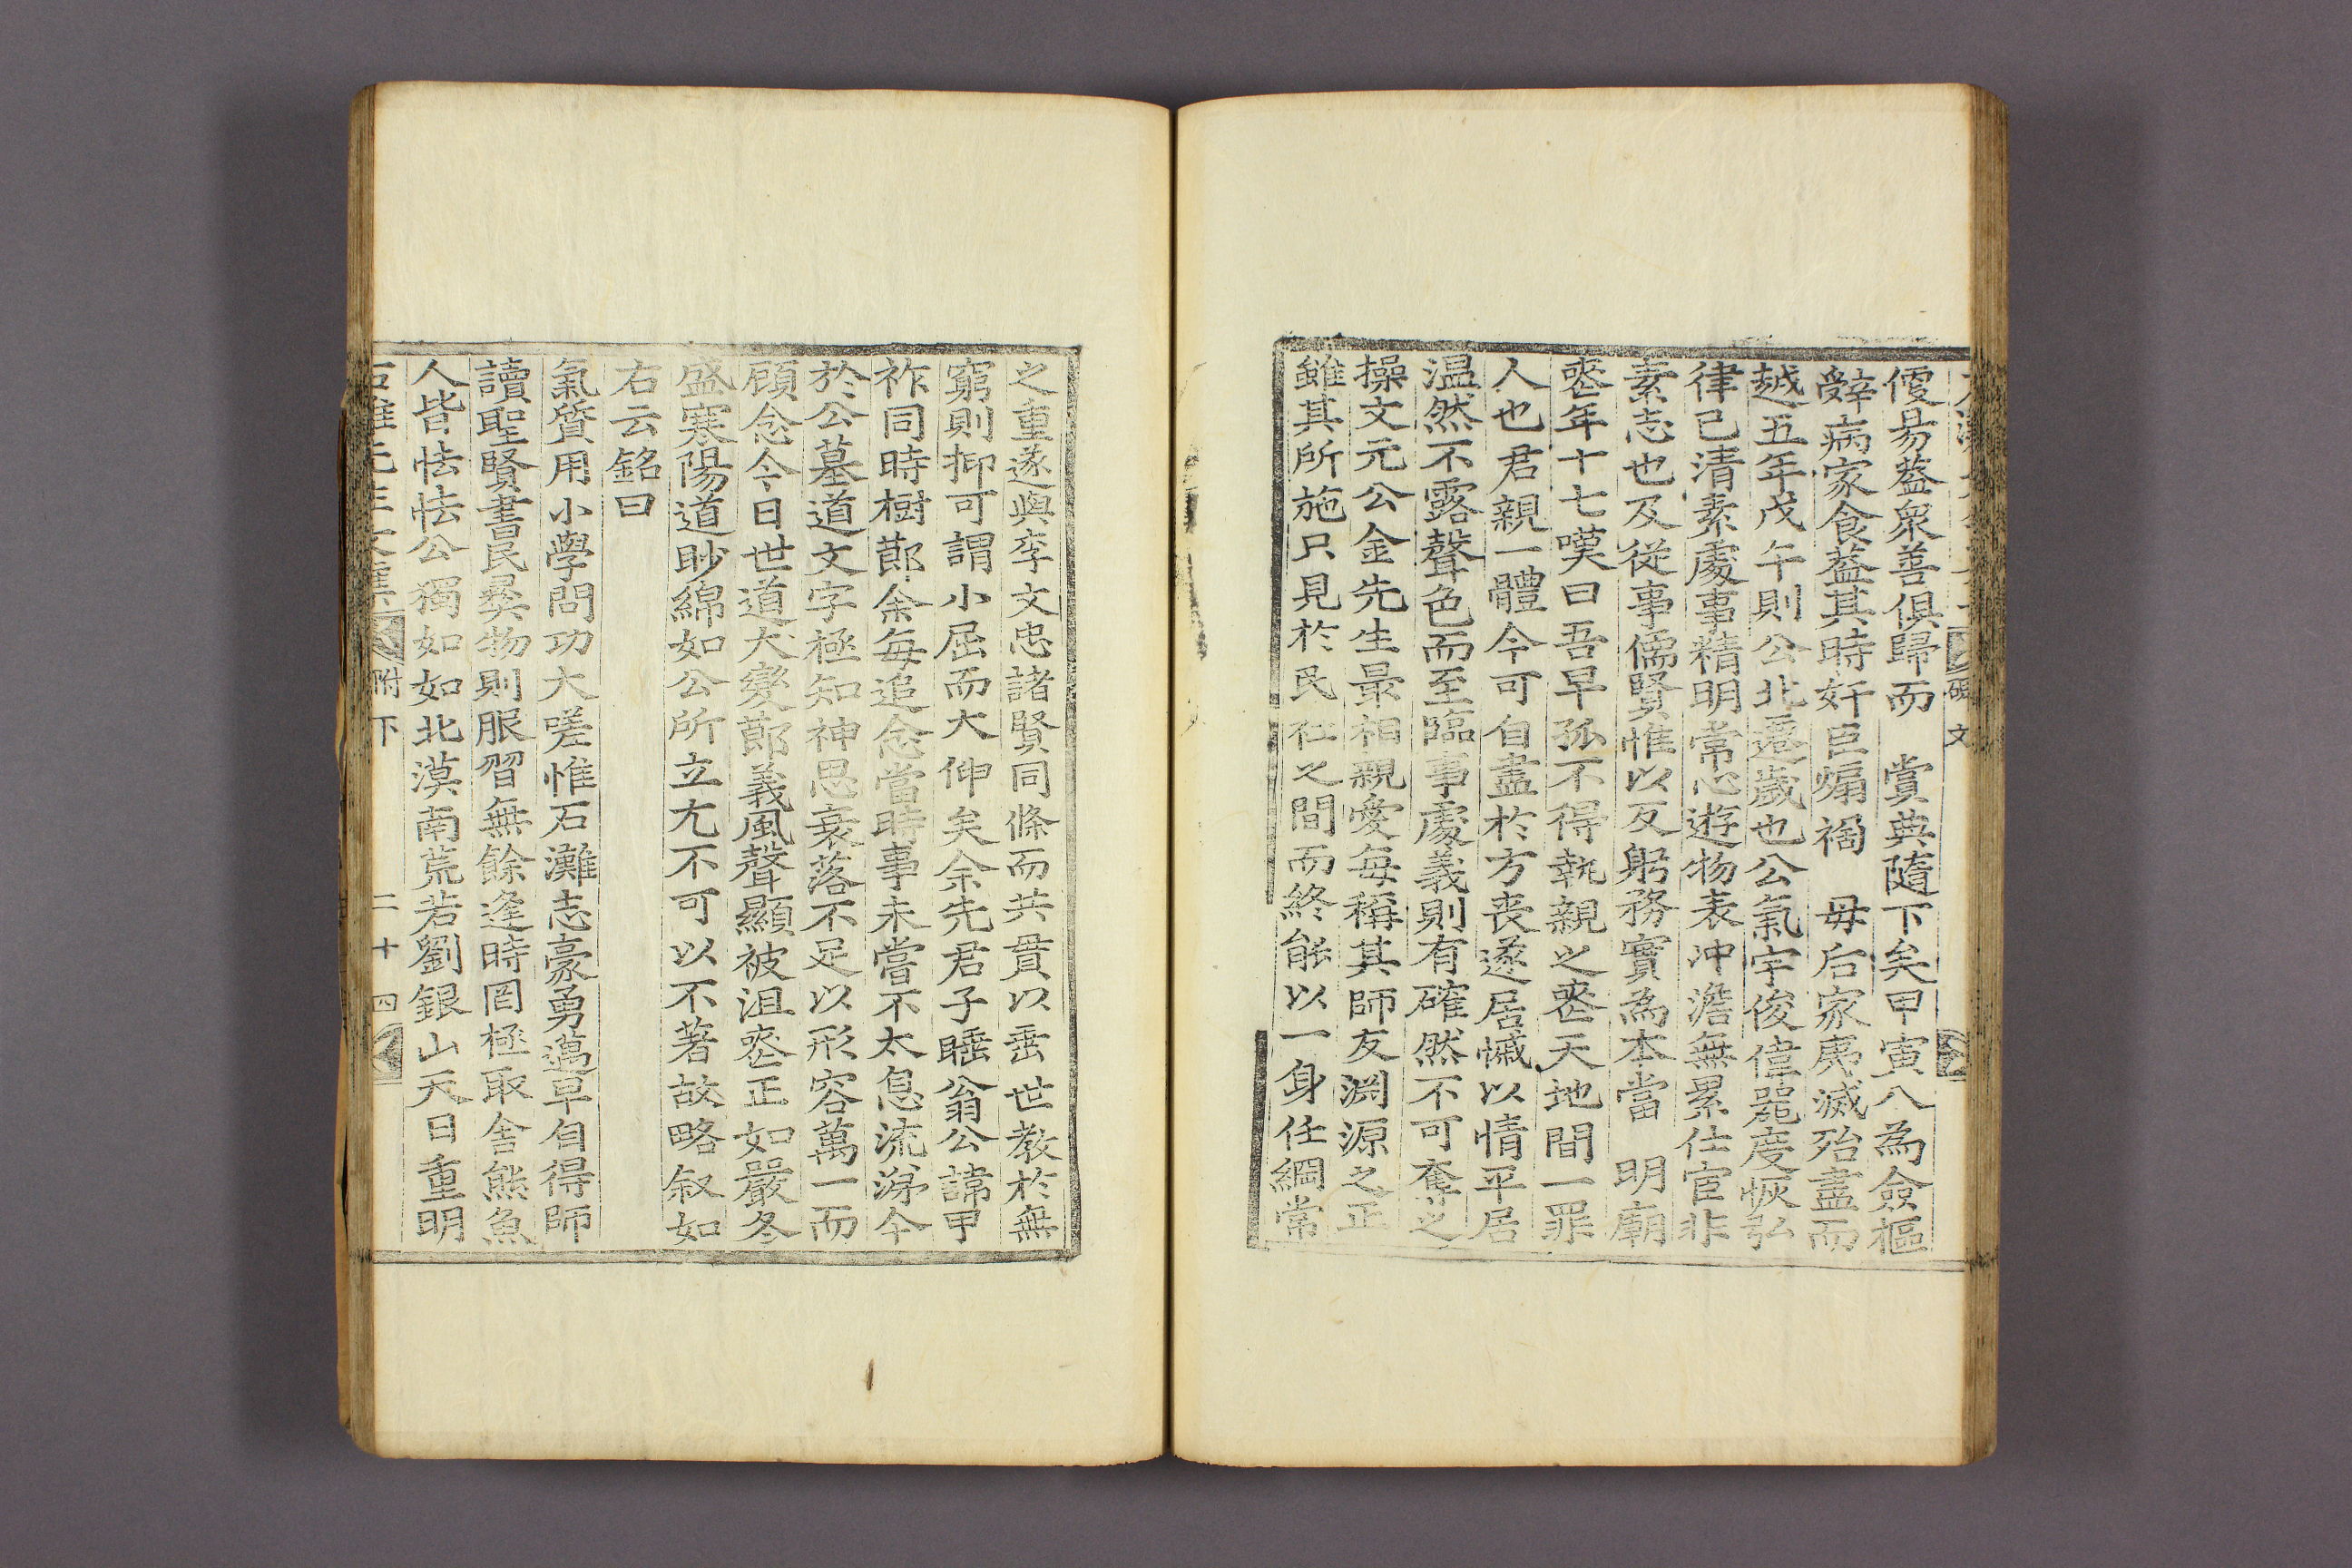 碑文
優昜葢衆善俱歸而　賞典隨下矣甲寅八為僉樞
辭病家食葢其時奸臣煽禍　毋后家夷滅殆盡而
越五年戊午則公北遷歲也公氣宇俊偉器度恢弘
律己清素處事精明常心遊物表冲澹無累仕宦非
素志也及從事儒賢惟以反躬務實為本當　明廟
喪年十七嘆曰吾早孤不得執親之喪天地間一罪
人也君親一體今可自盡於方喪遂居慽以情平居
溫然不露聲色而至臨事處義則有確然不可奪之
操文元公金先生最相親愛每稱其師友淵源之正
雖其所施只見於民社之間而終能以一身任綱常
之重遂與李文忠諸賢同條而共貫以垂世教於無
窮則抑可謂小屈而大伸矣余先君子睡翁公諱甲
祚同時樹節余每追念當時事未嘗不太息流涕今
於公墓道文字極知神思衰落不足以形容萬一而
顧念今日世道大變節義風聲顯被沮喪正如嚴冬
盛寒陽道眇綿如公所立尤不可以不著故略叙如
右云銘曰
氣質用小學問功大嗟惟石灘志豪勇邁早自得師
讀聖賢書民彛物則服習無餘逢時罔極取舍熊魚
人皆怯怯公獨如如北漠南荒若劉銀山天日重明
附下　二十四